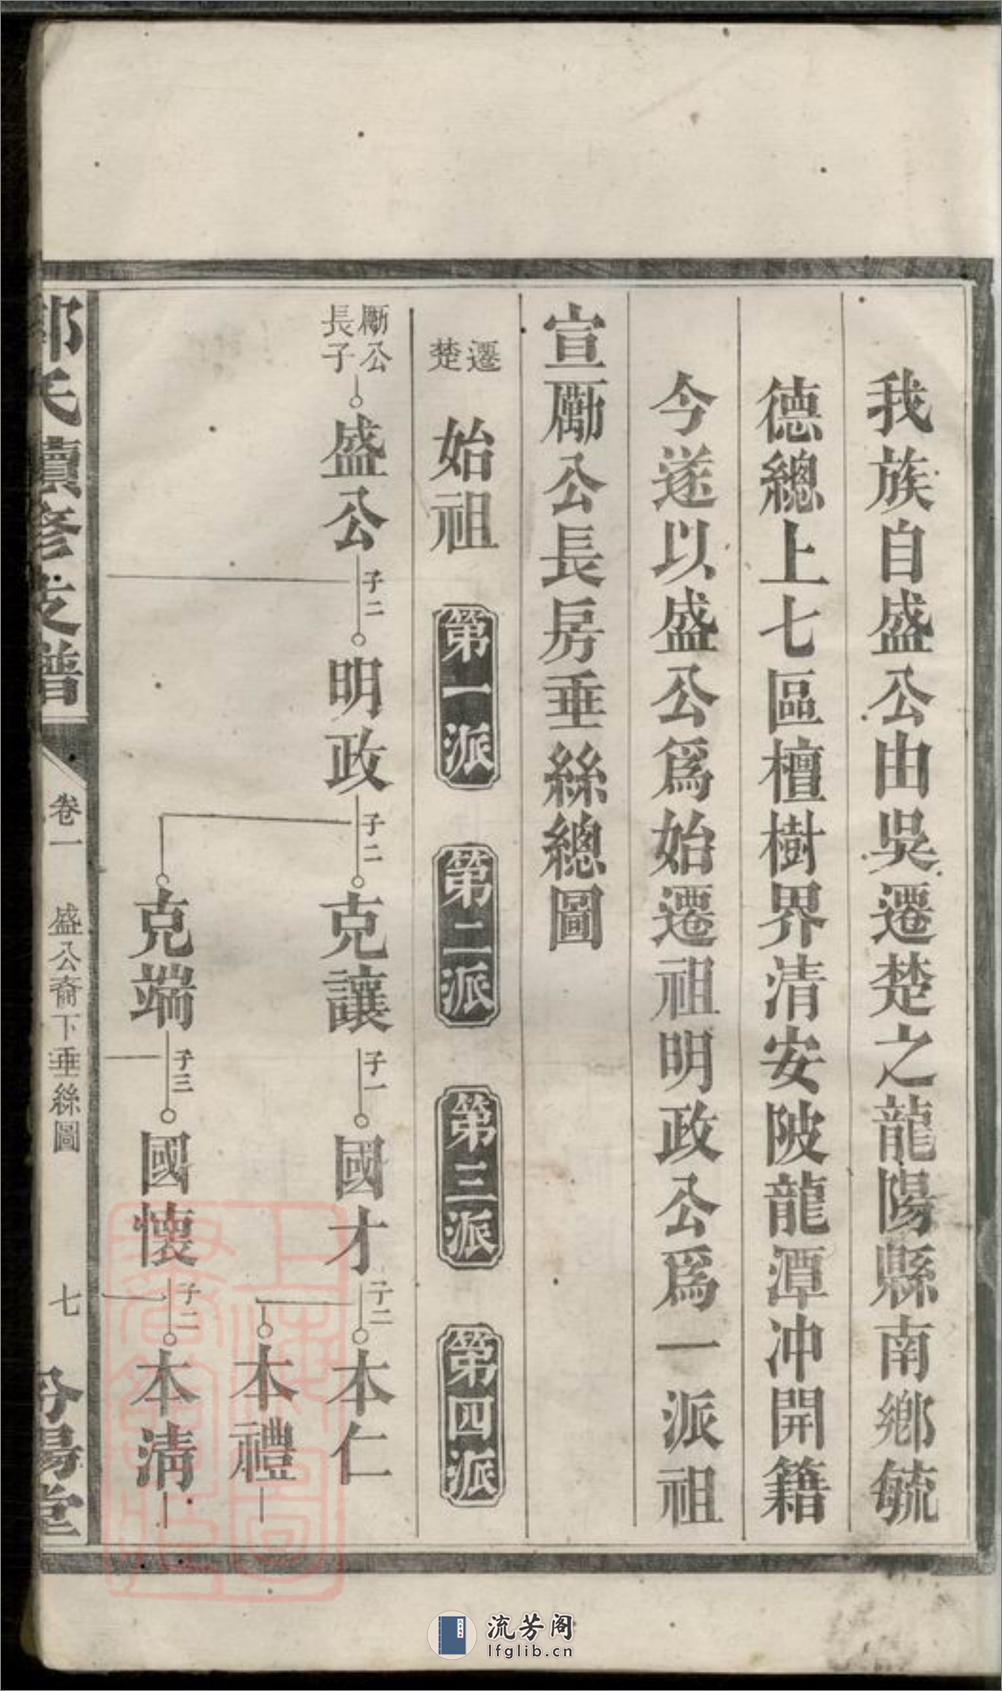 我族自盛公由吳遷楚之龍陽縣南鄉毓
德總上七區檀樹界清安陂龍潭冲開籍
今遂以盛公爲始遷祖明政公爲一派祖
宣勵公長房垂絲總圖
遷楚
始祖
第一派
第二派
第三派
第四派
勵公
長子
盛公
子二
明政
子二
克讓
子一
國才
子二
本仁
本禮
克端
子三
國懷
子二
本清
氏續修支譜
卷一
盛公裔下垂絲圖
七
汾陽堂
流芳阁
lfglib.cn